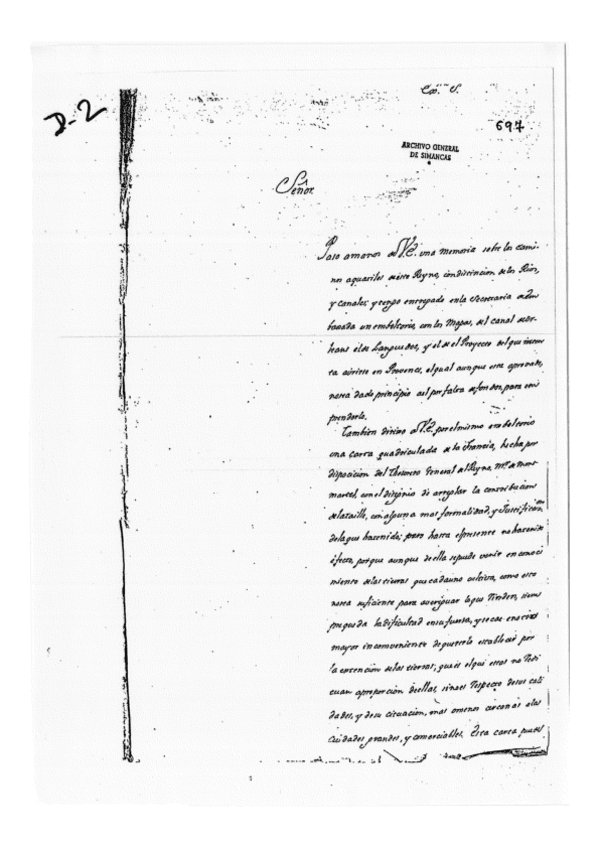 D-2
697
ARCHIVO GENERAL
DE SIMANCAS
Señor.
Paso amanos de V.E. una Memoria sobre los cami
nos aquatiles de este Reyno, con distincion de los Rios,
y canales, y tengo entregado en la Secretaria
un emboltorio, con los Mapas, del canal de Or
leans el de Languedoc, y el de el Proyecto del que inten
ta abrirse en Provence, el qual aunque esta aprovado,
no sea dado principio ael por falta de fondos, para em
prenderle.
Tambien dirixo a V.E. por el mismo emboltorio
una carta quadriculada de la Francia, hecha por
disposicion del Thesorero General del Reyno, Mr. de Mont
martel, con el designio de arreglar la contribucion
de la taille, con alguna mas formalidad, y Justificaon.
dela que ha tenido; pero hasta el presente no ha tenido
efecto, porque aunque de ella se puede venir en conoci
miento de las tierras que cada uno cultiva, como esto
no sea suficiente para averiguar lo que Rinden, siem
pre queda la dificultad en su fuerza, y
mayor inconveniente de quererlo establecer por
la extencion de las tierras; que es el que estas no Redi
tuan a proporcion de ellas, sino es Respecto de sus cali
dades, y de su cituacion, mas o menos cercanas a las
Ciudades grandes, y comerciables. Esta carta pues